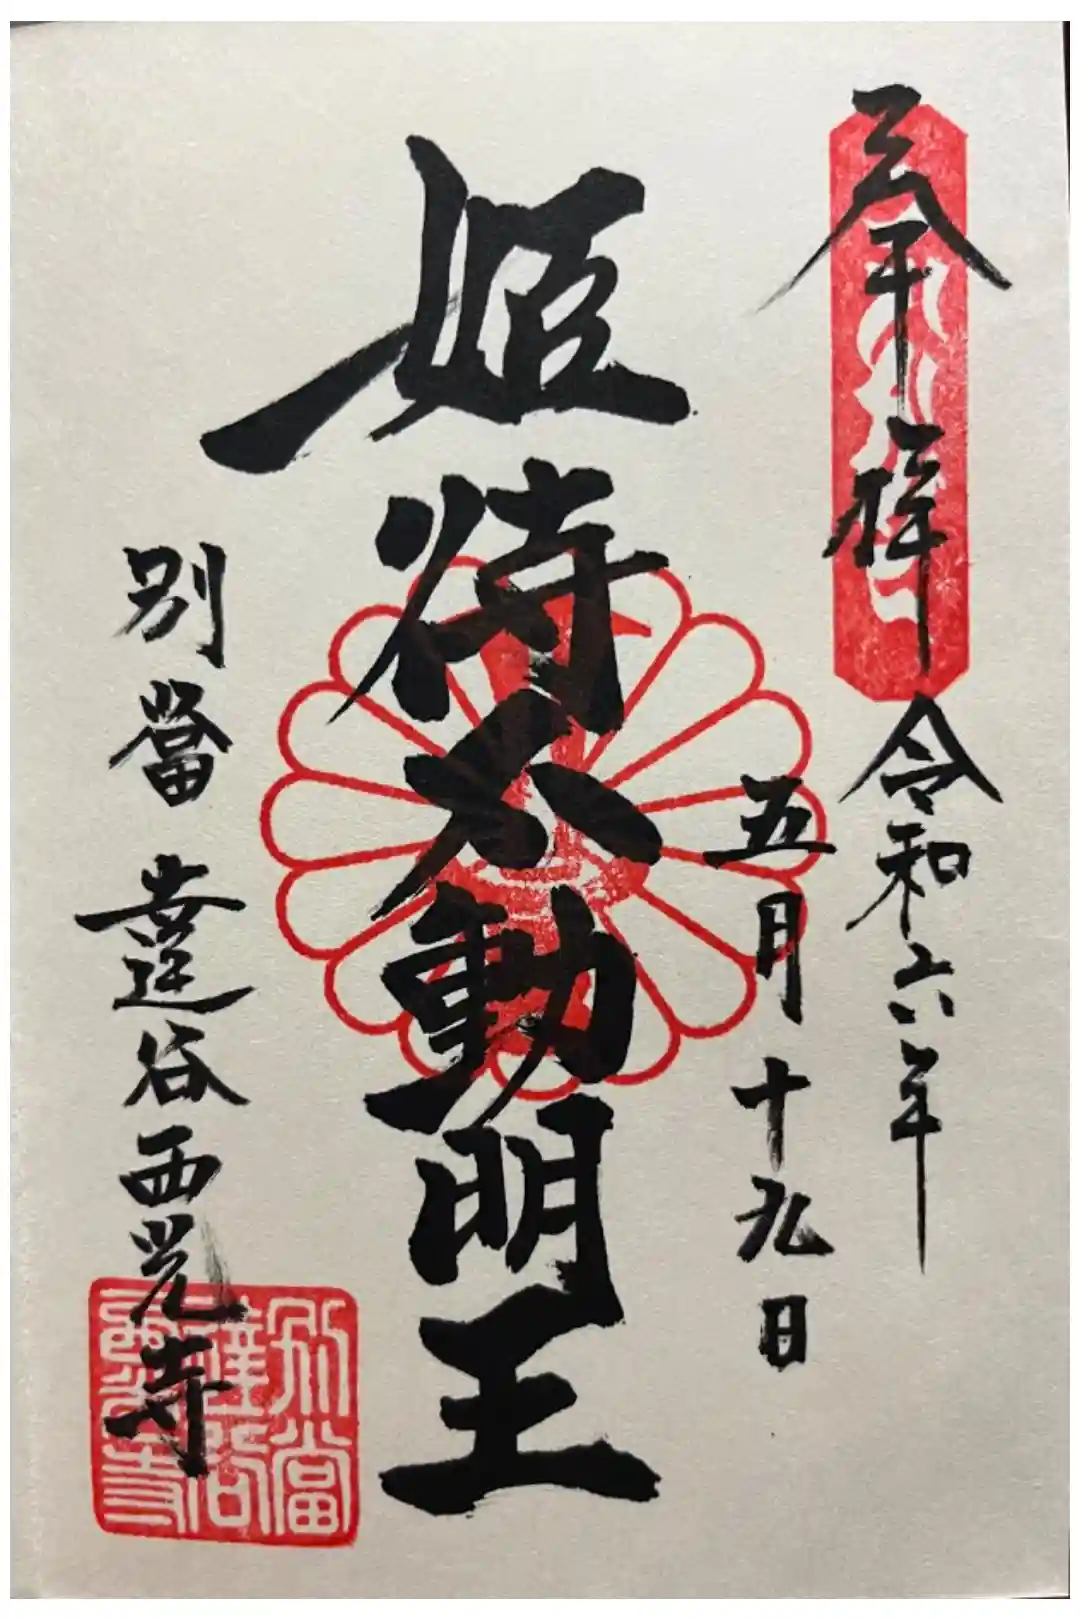 奉拝 令和六年
五月十九日
姫待不動明王
別當 達谷西光寺
別當
達谷
西光寺